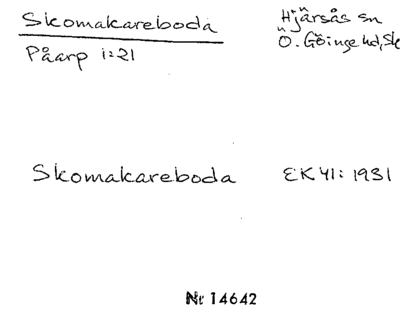 Skomakareboda Hjärsås sn
Påarp 1:21 Ö. Göinge hd, Sk
Skomakareboda EK41: 1931
Nr 14642